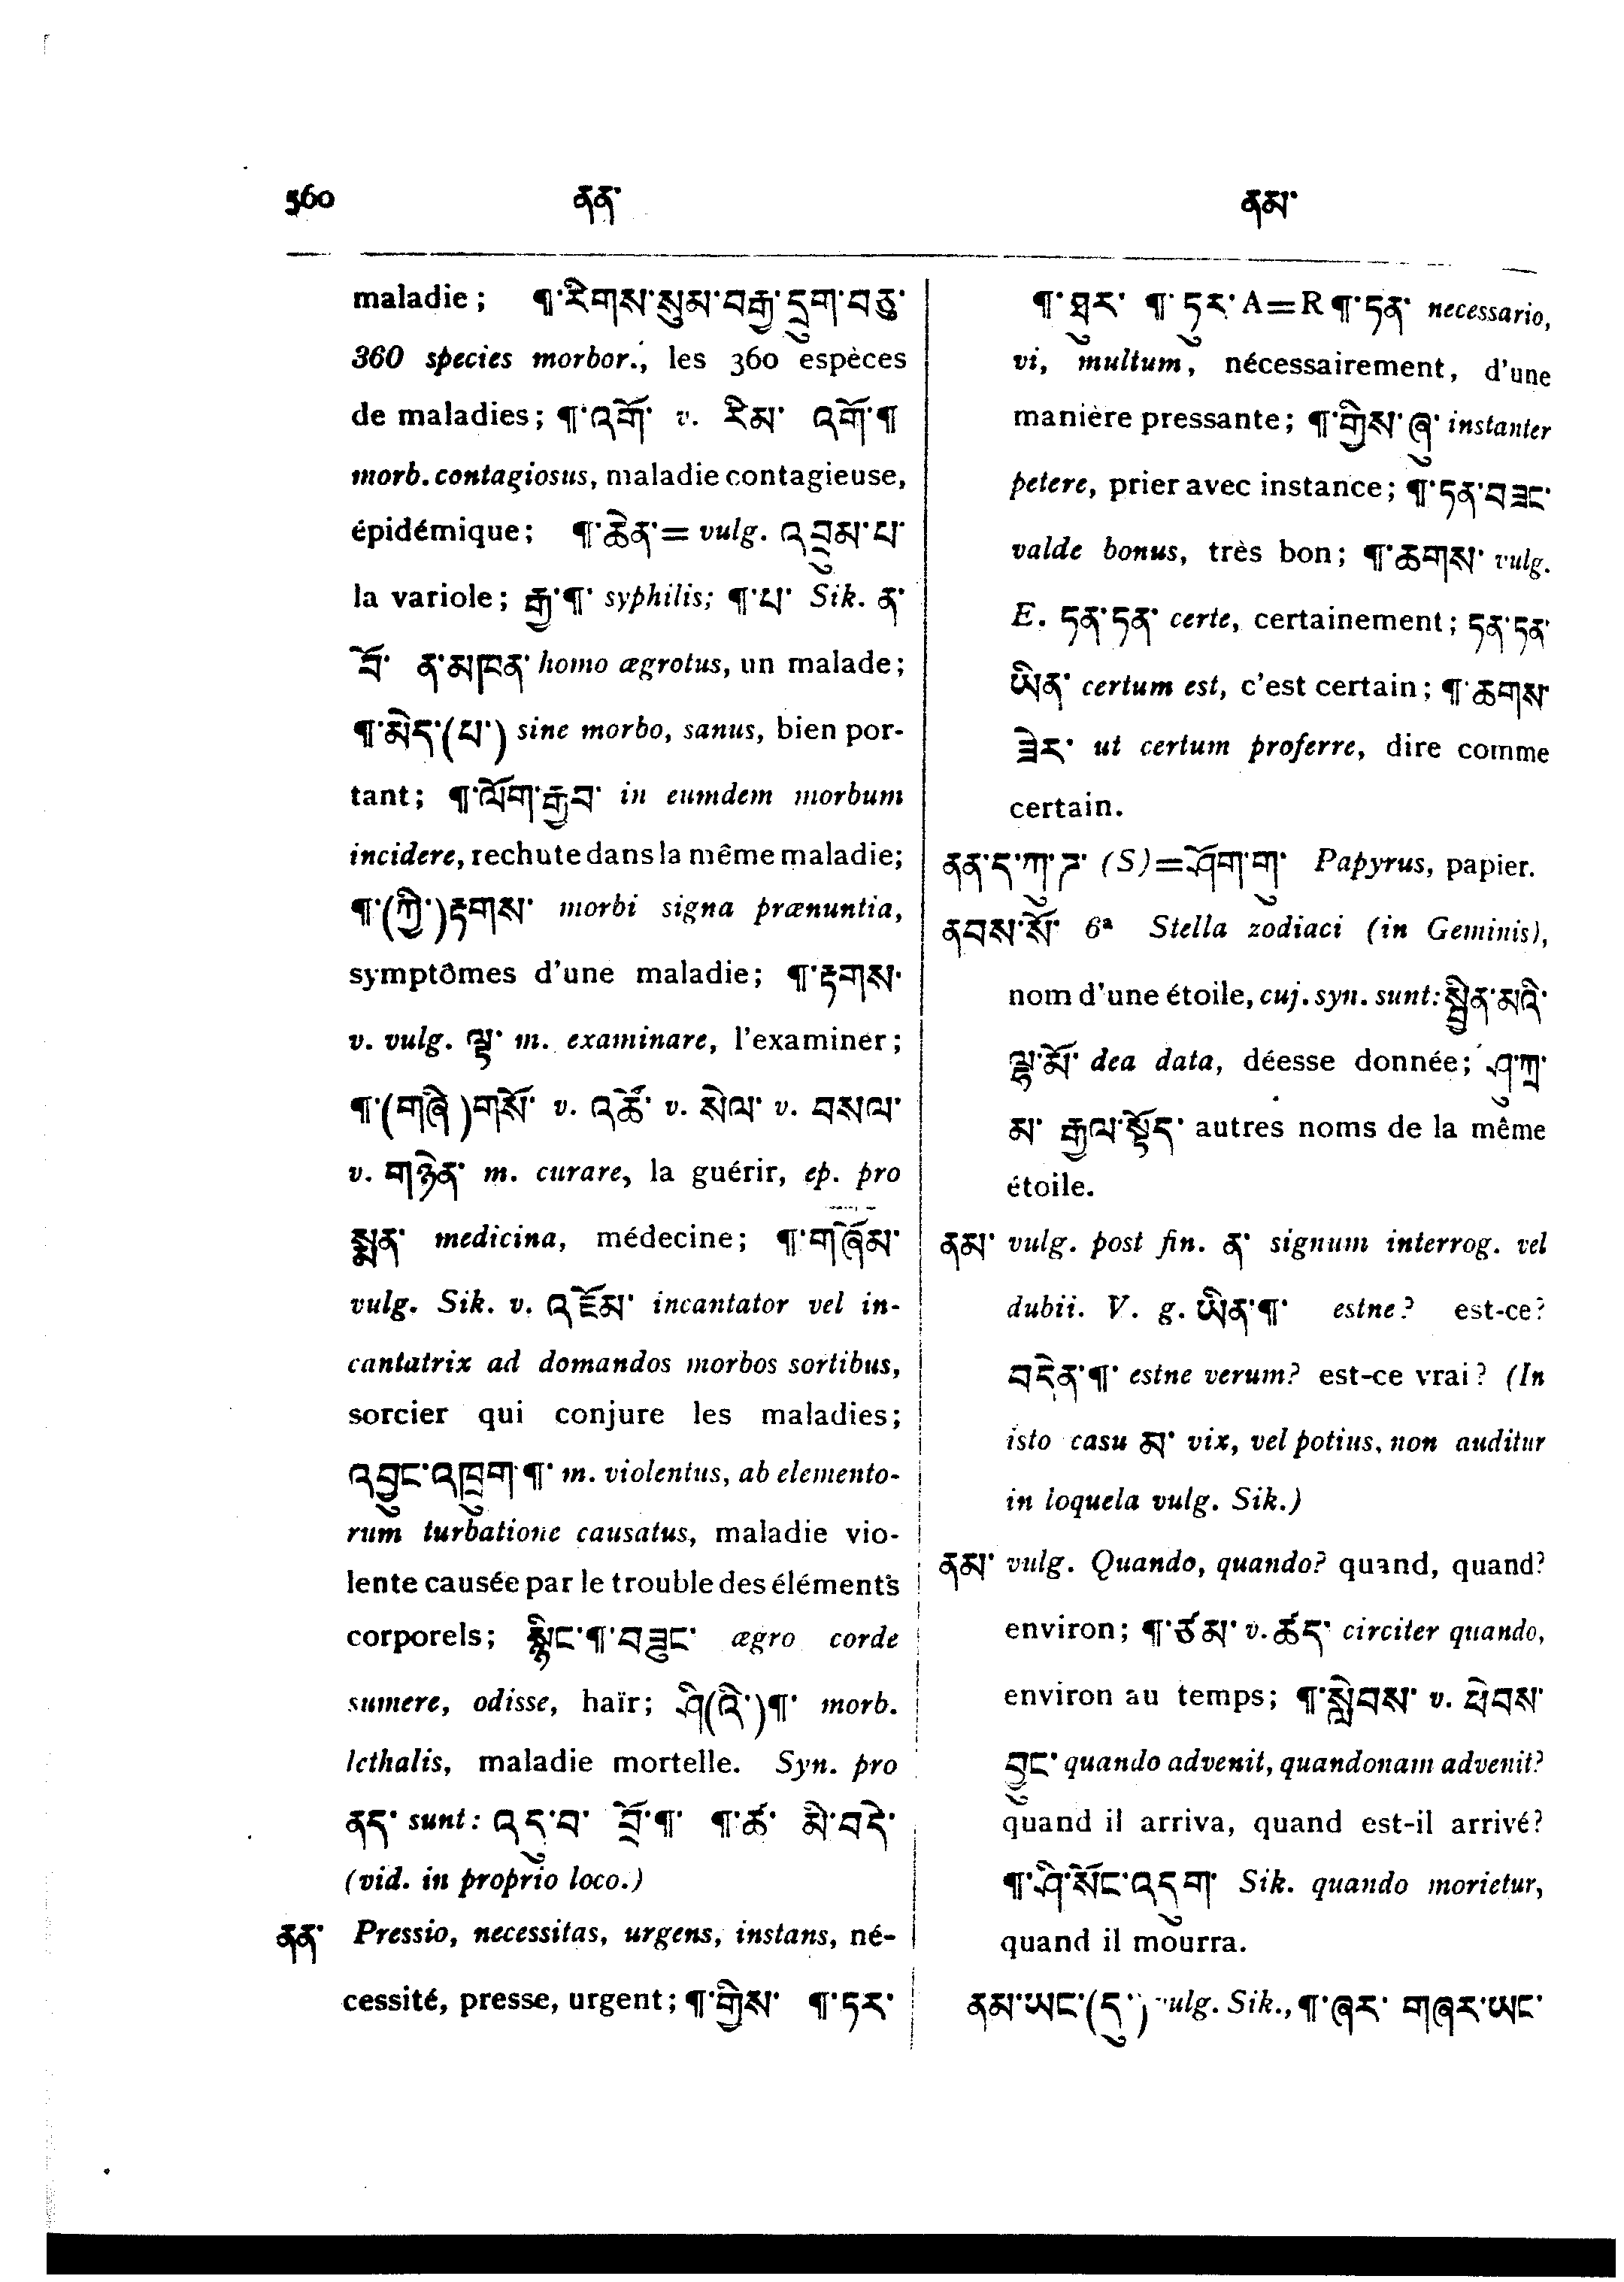 560 ནན་ ནམ་
maladie; ¶་རིགས་སུམ་བརྒྱ་དྲུག་བཅུ་
360 species morbor., les 360 espèces
de maladies; ¶་འགོ་ v. རིམ་ འགོ་¶
morb. contagiosus, maladie contagieuse,
épidémique; ¶་ཆེན་= vulg. འབྲུམ་པ་
la variole; རྒྱ་¶་ syphilis; ¶་པ་ Sik. ན་
བོ་ ན་མཁན་ homo ægrotus, un malade;
¶་མེད་(པ་) sine morbo, sanus, bien por-
tant; ¶་ལོག་རྒྱབ་ in eumdem morbum
incidere, rechute dans la même maladie;
¶་(ཀྱི་)རྟགས་ morbi signa prænuntia,
symptômes d'une maladie; ¶་རྟགས་
v. vulg. ལྟ་ m. examinare, l'examiner;
¶་(གཞི)གསོ་ v. འཚོ་ v. སེལ་ v. བསལ་
v. གཉེན་ m. curare, la guérir, ep. pro
སྨན་ medicina, médecine; ¶་གཞོམ་
vulg. Sik. v. འཇོམ་ incantator vel in-
cantatrix ad domandos morbos sortibus,
sorcier qui conjure les maladies;
འབྱུང་འཁྲུག་¶་ m. violentus, ab elemento-
rum turbatione causatus, maladie vio-
lente causée par le trouble des éléments
corporels; སྙིང་¶་བཟུང་ ægro corde
sumere, odisse, haïr; ཤི(འི་)¶་ morb.
lethalis, maladie mortelle. Syn. pro
ནད་ sunt: འདུ་བ་ བྲོ་¶་ ¶་ཚ་ མི་བདེ་
(vid. in proprio loco.)
ནན་ Pressio, necessitas, urgens, instans, né-
cessité, presse, urgent; ¶་གྱིས་ ¶་ཏར་
¶་ཐུར་ ¶་ཏུར་ A=R ¶་ཏན་ necessario,
vi, multum, nécessairement, d'une
manière pressante; ¶་གྱིས་ཞུ་ instanter
petere, prier avec instance; ¶་ཏན་བཟང་
valde bonus, très bon; ¶་ཆགས་ vulg.
E. ཏན་ཏན་ certe, certainement; ཏན་ཏན་
ཡིན་ certum est, c'est certain; ¶་ཆགས་
ཟེར་ ut certum proferre, dire comme
certain.
ནན་ད་ཀུ་ཊ་ (S)=ཤོག་གུ་ Papyrus, papier.
ནབས་སོ་ 6ª Stella zodiaci (in Geminis),
nom d'une étoile, cuj. syn. sunt: སྦྱིན་མའི་
ལྷ་མོ་ dea data, déesse donnée; ཤུ་ཀྲ་
མ་ རྒྱལ་སྟོད་ autres noms de la même
étoile.
ནམ་ vulg. post fin. ན་ signum interrog. vel
dubii. V. g. ཡིན་¶་ estne? est-ce?
བདེན་¶་ estne verum? est-ce vrai? (In
isto casu མ་ vix, vel potius, non auditur
in loquela vulg. Sik.)
ནམ་ vulg. Quando, quando? quand, quand?
environ; ¶་ཙམ་ v. ཚད་ circiter quando,
environ au temps; ¶་སླེབས་ v. ཕེབས་
བྱུང་ quando advenit, quandonam advenit?
quand il arriva, quand est-il arrivé?
¶་ཤི་སོང་འདུག་ Sik. quando morietur,
quand il mourra.
ནམ་ཡང་(དུ་) vulg. Sik., ¶་ཞར་ གཞར་ཡང་